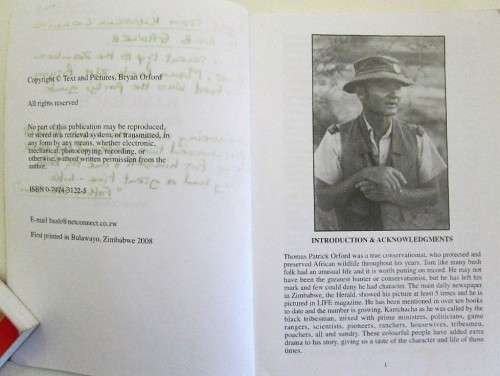 Copyright © Text and Pictures, Bryan Orford
All rights reserved
No part of this publication may be reproduced,
or stored in a retrieval system, or transmitted, in
any form by any means, whether electronic,
mechanical, photocopying, recording, or
otherwise, without written permission from the
author.
ISBN 0-7974-3122-5
E-mail bush@netconnect.co.zw
First printed in Bulawayo, Zimbabwe 2008
INTRODUCTION & ACKNOWLEDGMENTS
Thomas Patrick Orford was a true conservationist, who protected and
preserved African wildlife throughout his years. Tom like many bush
folk had an unusual life and it is worth putting on record. He may not
have been the greatest hunter or conservationist, but he has left his
mark and few could deny he had character. The main daily newspaper
in Zimbabwe, the Herald, showed his picture at least 5 times and he is
pictured in LIFE magazine. He has been mentioned in over ten books
to date and the number is growing. Kamchacha as he was called by the
black tribesman, mixed with prime ministers, politicians, game
rangers, scientists, pioneers, ranchers, housewives, tribesmen,
poachers, all and sundry. These colourful people have added extra
drama to his story, giving us a taste of the character and life of those
times.
1